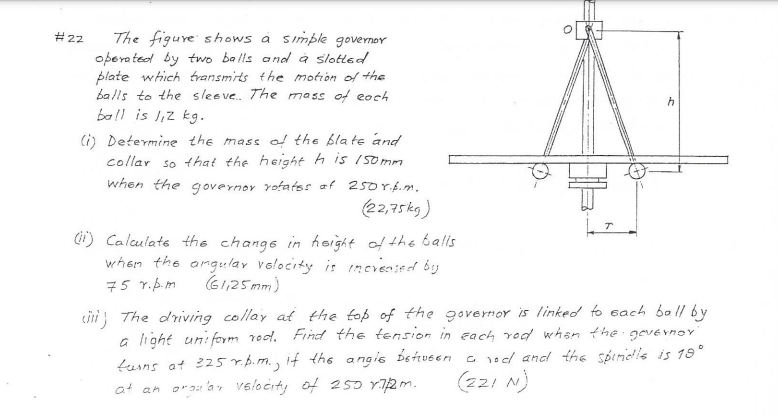 #22 The figure shows a simple governor
operated by two balls and a slotted
plate which transmits the motion of the
balls to the sleeve. The mass of each
ball is 1,2 kg.
(i) Determine the mass of the plate and
collar so that the height h is 150mm
when the governor rotates at 250 r.p.m.
(22,75kg)
(ii) Calculate the change in height of the balls
when the angular velocity is increased by
75 r.p.m (61,25mm)
(iii) The driving collar at the top of the governor is linked to each ball by
a light uniform rod. Find the tension in each rod when the governor
turns at 325 r.p.m., if the angle between a rod and the spindle is 18°
at an angular velocity of 250 r.p.m. (221 N)
O
h
r